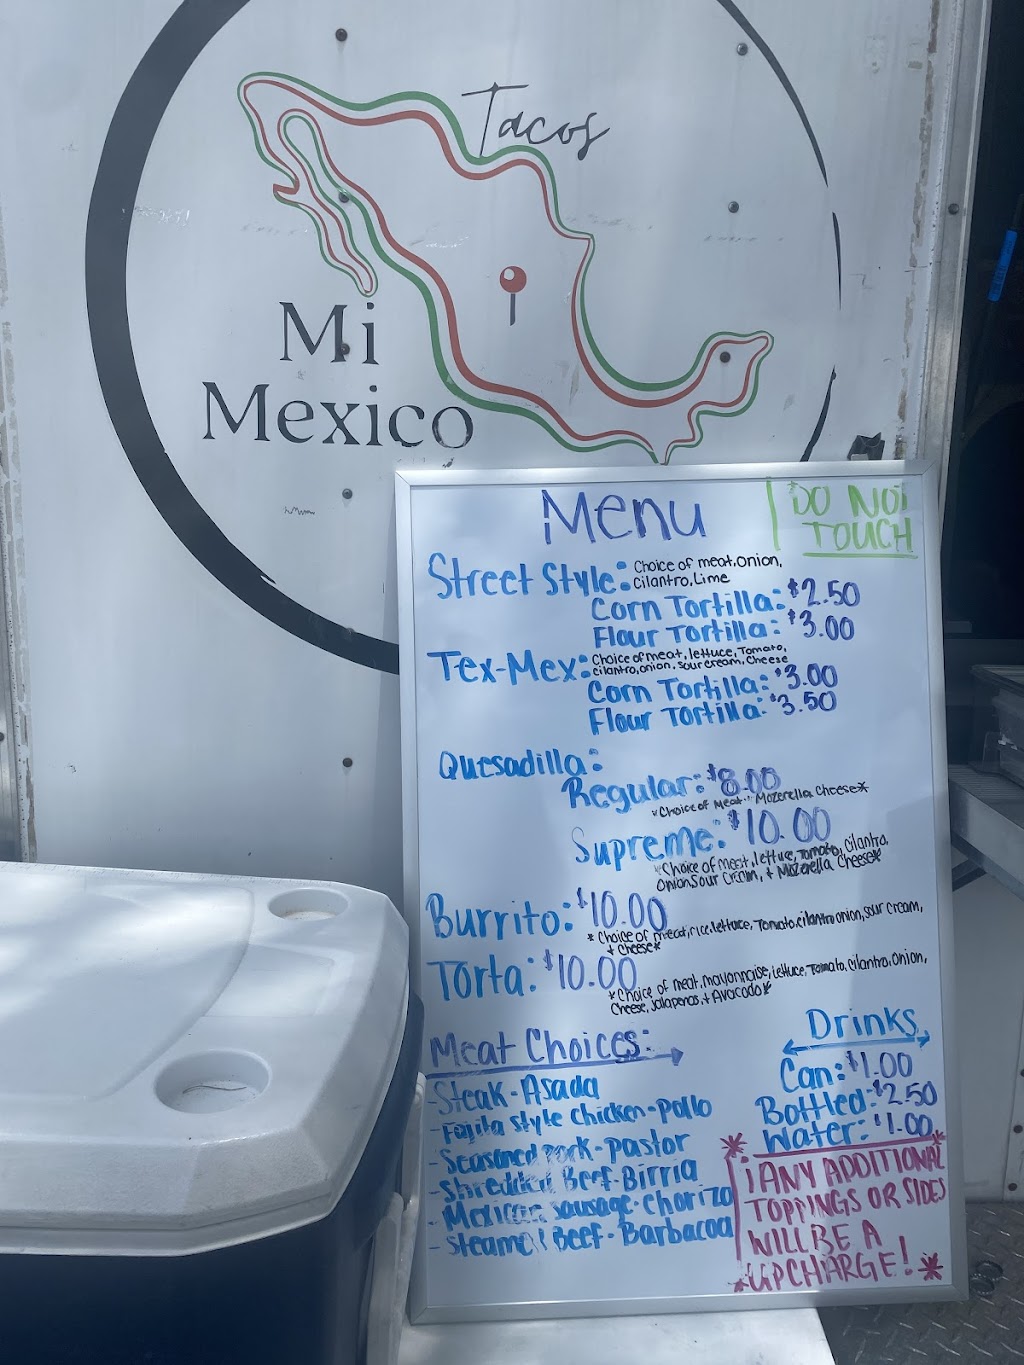 Tacos
Mi
Mexico
Menu
DO NOT
TOUCH
Street Style: Choice of meat, Onion,
Cilantro, Lime
Corn Tortilla: $2.50
Flour Tortilla: $3.00
Tex-Mex: Choice of meat, lettuce, Tomato,
cilantro, onion, sour cream, Cheese
Corn Tortilla: $3.00
Flour Tortilla: $3.50
Quesadilla:
Regular: $8.00
*Choice of Meat + Mozerella Cheese*
Supreme: $10.00
*Choice of meat, lettuce, Tomato, cilantro,
Onion, Sour Cream, + Mozerella Cheese*
Burrito: $10.00
* Choice of meat, rice, lettuce, Tomato, cilantro, onion, sour cream,
+ Cheese*
Torta: $10.00
*Choice of meat, mayonnaise, lettuce, Tomato, Cilantro, Onion,
Cheese, Jalapenos, + Avocado*
Meat Choices:
-Steak-Asada
-Fajita Style Chicken-Pollo
-Seasoned Pork-Pastor
-Shredded Beef-Birria
-Mexican Sausage-Chorizo
-Steamed Beef-Barbacoa
Drinks
Can: $1.00
Bottled: $2.50
Water: $1.00
* ¡ANY ADDITIONAL *
TOPPINGS OR SIDES
WILL BE A
*UPCHARGE! *